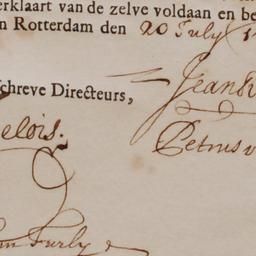 erklaart van de zelve voldaan en be
n Rotterdam den 20 July 1
Jean
schreve Directeurs,
elois.
Petrus v
Furly